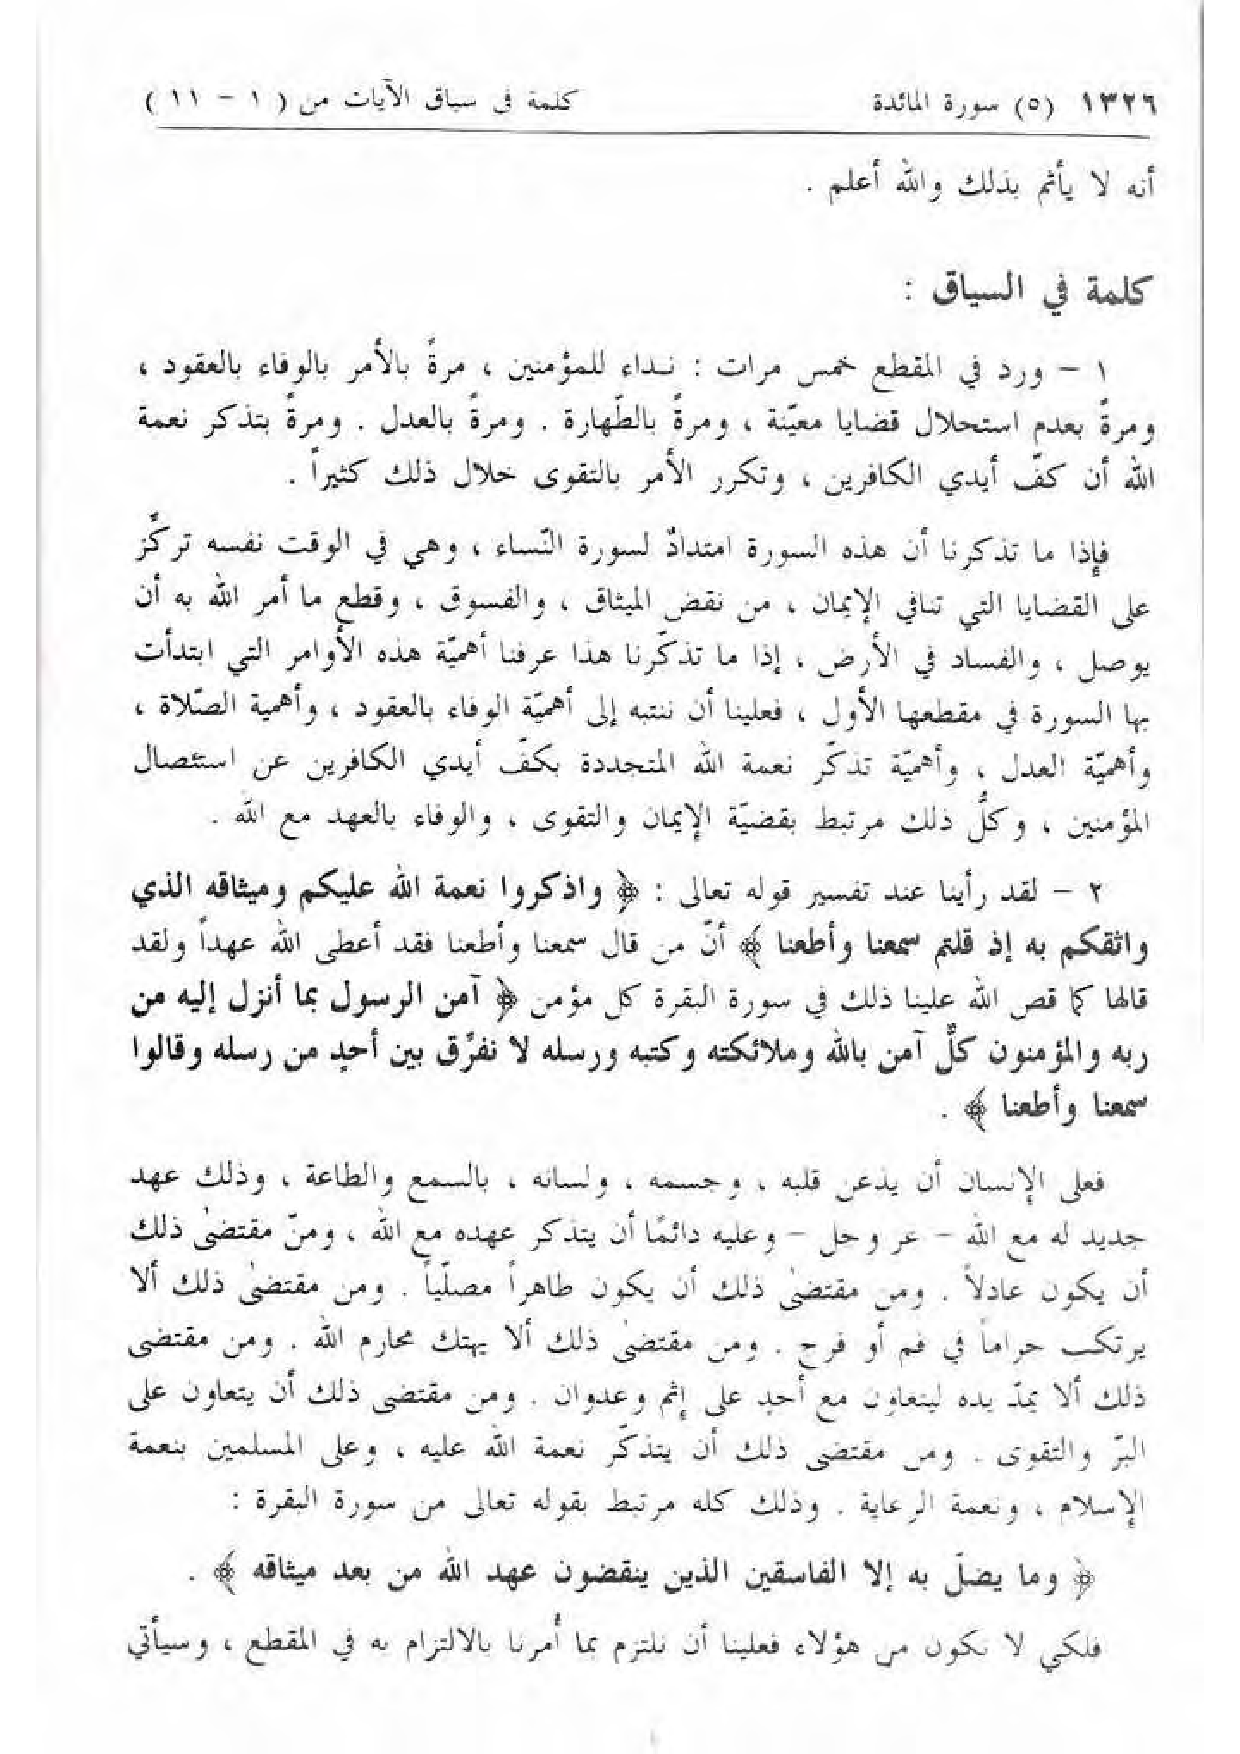 ١٣٢٦ (٥) سورة المائدة كلمة في سياق الآيات من ( ١ - ١١ )
أنه لا يأثم بذلك والله أعلم .
كلمة في السياق :
١ - ورد في المقطع خمس مرات : نداء للمؤمنين ، مرةً بالأمر بالوفاء بالعقود ،
ومرةً بعدم استحلال قضايا معيّنة ، ومرةً بالطّهارة . ومرةً بالعدل . ومرةً بتذكر نعمة
الله أن كفّ أيدي الكافرين ، وتكرر الأمر بالتقوى خلال ذلك كثيراً .
فإذا ما تذكرنا أن هذه السورة امتدادٌ لسورة النّساء ، وهي في الوقت نفسه تركّز
على القضايا التي تنافي الإيمان ، من نقض الميثاق ، والفسوق ، وقطع ما أمر الله به أن
يوصل ، والفساد في الأرض ، إذا ما تذكّرنا هذا عرفنا أهميّة هذه الأوامر التي ابتدأت
بها السورة في مقطعها الأول ، فعلينا أن ننتبه إلى أهميّة الوفاء بالعقود ، وأهمية الصّلاة ،
وأهميّة العدل ، وأهميّة تذكّر نعمة الله المتجددة بكفّ أيدي الكافرين عن استئصال
المؤمنين ، وكلُّ ذلك مرتبط بقضيّة الإيمان والتقوى ، والوفاء بالعهد مع الله .
٢ - لقد رأينا عند تفسير قوله تعالى : ﴿ واذكروا نعمة الله عليكم وميثاقه الذي
واثقكم به إذ قلتم سمعنا وأطعنا ﴾ أنّ من قال سمعنا وأطعنا فقد أعطى الله عهداً ولقد
قالها كما قص الله علينا ذلك في سورة البقرة كل مؤمن ﴿ آمن الرسول بما أنزل إليه من
ربه والمؤمنون كلٌّ آمن بالله وملائكته وكتبه ورسله لا نفرِّق بين أحدٍ من رسله وقالوا
سمعنا وأطعنا ﴾ .
فعلى الإنسان أن يذعن قلبه ، وجسمه ، ولسانه ، بالسمع والطاعة ، وذلك عهد
جديد له مع الله - عز وجل - وعليه دائمًا أن يتذكر عهده مع الله ، ومنّ مقتضىٰ ذلك
أن يكون عادلاً . ومن مقتضىٰ ذلك أن يكون طاهراً مصلّياً . ومن مقتضىٰ ذلك ألا
يرتكب حراماً في فم أو فرج . ومن مقتضىٰ ذلك ألا يهتك محارم الله . ومن مقتضى
ذلك ألا يمدّ يده ليتعاون مع أحدٍ على إثم وعدوان . ومن مقتضى ذلك أن يتعاون على
البرّ والتقوى . ومن مقتضى ذلك أن يتذكّر نعمة الله عليه ، وعلى المسلمين بنعمة
الإسلام ، ونعمة الرعاية . وذلك كله مرتبط بقوله تعالى من سورة البقرة :
﴿ وما يضلّ به إلا الفاسقين الذين ينقضون عهد الله من بعد ميثاقه ﴾ .
فلكي لا نكون من هؤلاء فعلينا أن نلتزم بما أُمرنا بالالتزام به في المقطع ، وسيأتي